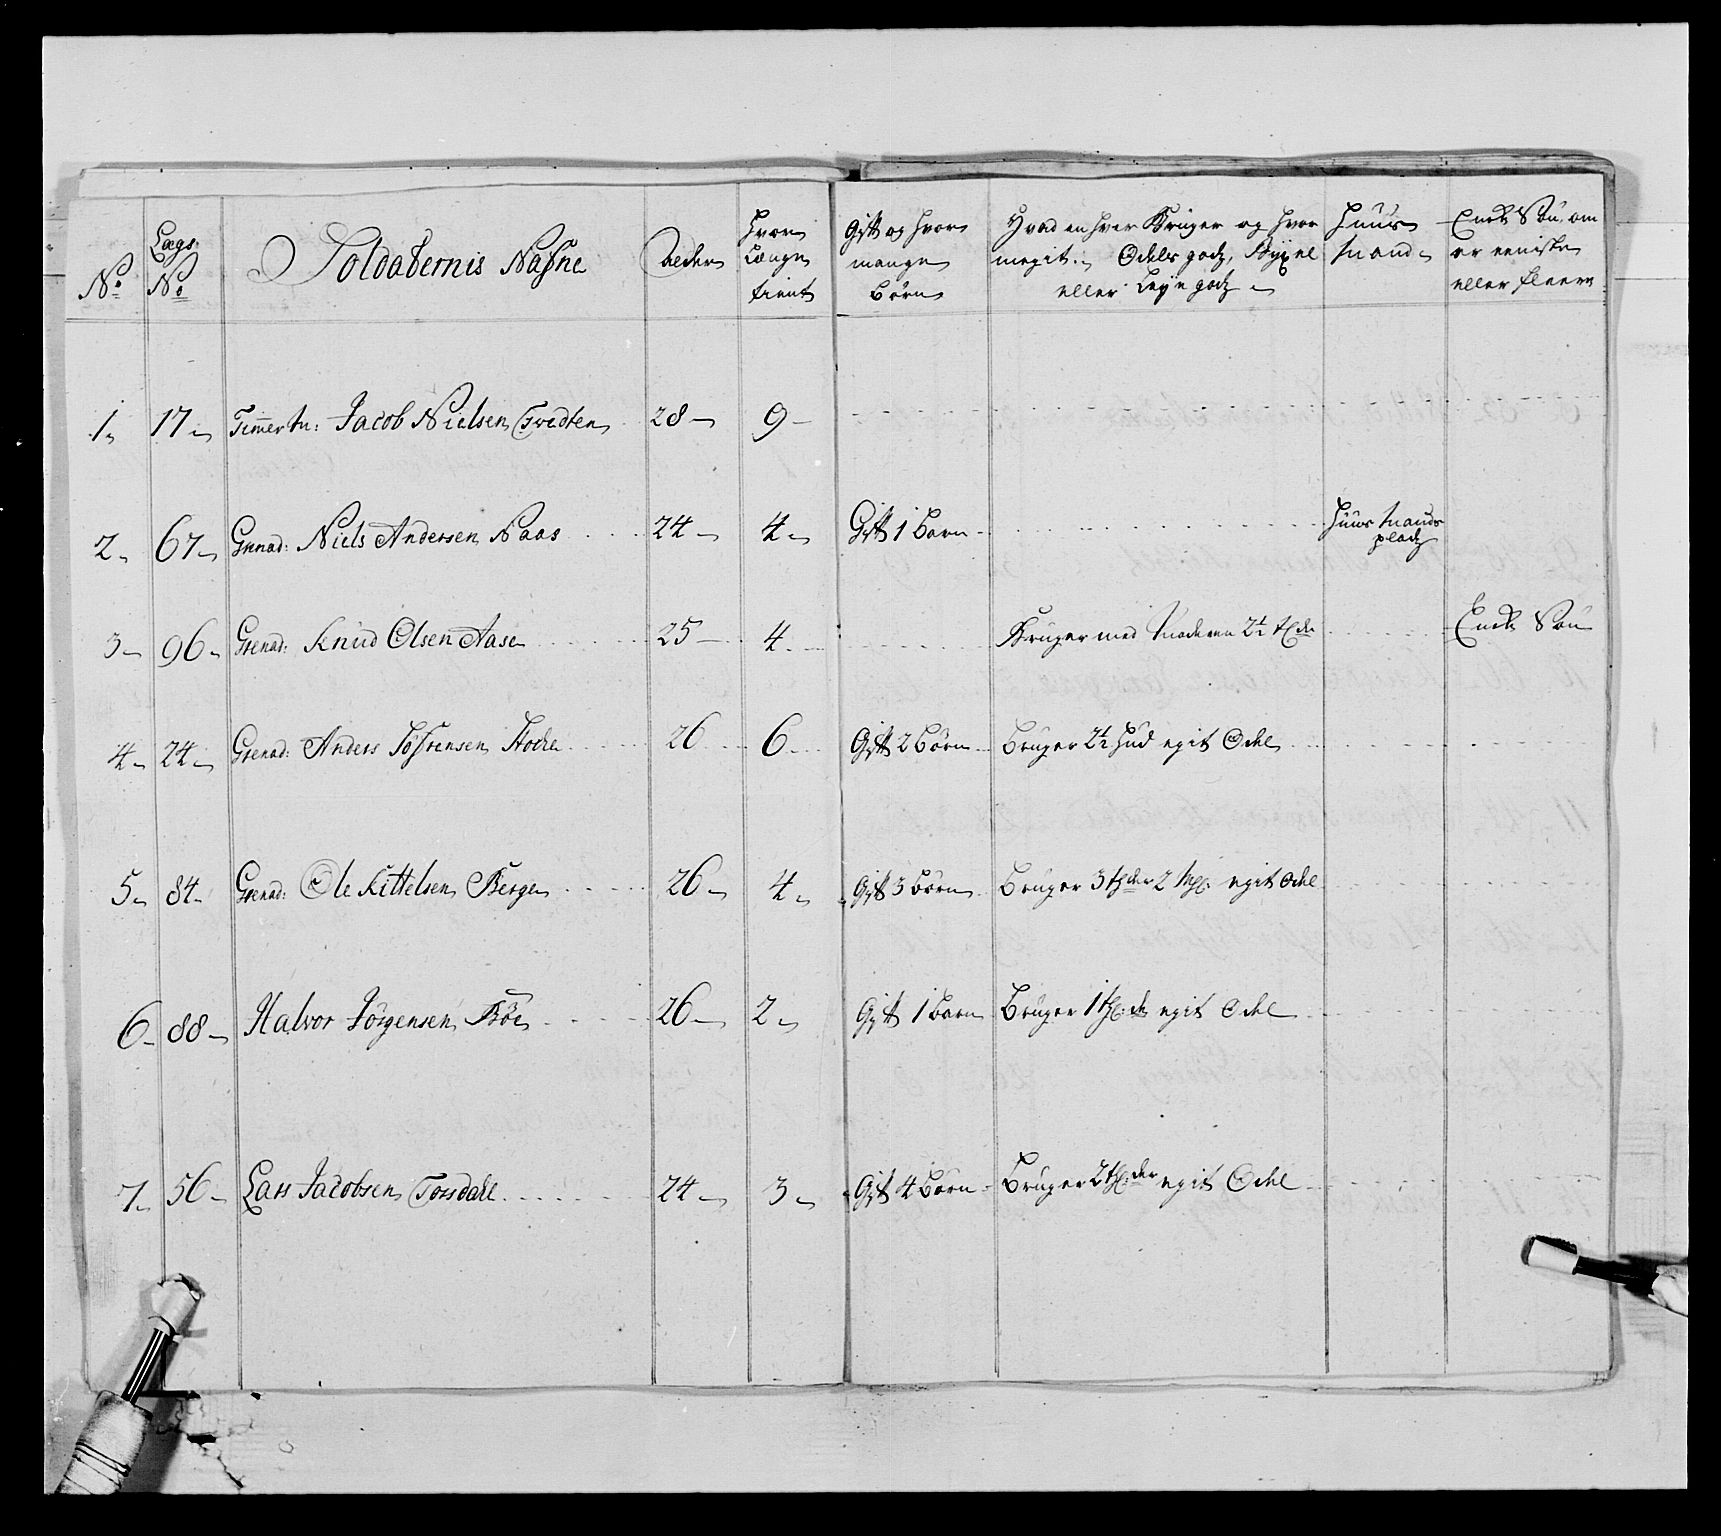 No | Lægs No | Soldaternis Nafne | Alder | Hvor Længe tient | Gift og hvor mange Børn | Hvad en hver Bruger og hvor meget. Odels godz, Bygsel eller Leye godz | Huus Mand | Eneste Søn, om er eeniste eller fleere
1 | 17 | Timerm: Jacob Nielsen Tvedten | 28 | 9
2 | 67 | Grenad: Niels Andersen Naas | 24 | 4 | Gift 1 Barn | | Huus Mands pladz
3 | 96 | Grenad: Knud Olsen Aase | 25 | 4 | | Bruger med Moderen 2½ | | Søn
4 | 24 | Grenad: Anders Søfrensen | 26 | 6 | Gift 2 Børn | Bruger 2½ Hud egit Odel
5 | 84 | Grenad: Ole Kittelsen Berge | 26 | 4 | Gift 3 Børn | Bruger 3 2 egit Odel
6 | 88 | Halvor Jörgensen Böe | 26 | 2 | Gift 1 Barn | Bruger 1 egit Odel
7 | 56 | Lars Jacobsen Torsdahl | 24 | 3 | Gift 4 Børn | Bruger 2 egit Odel